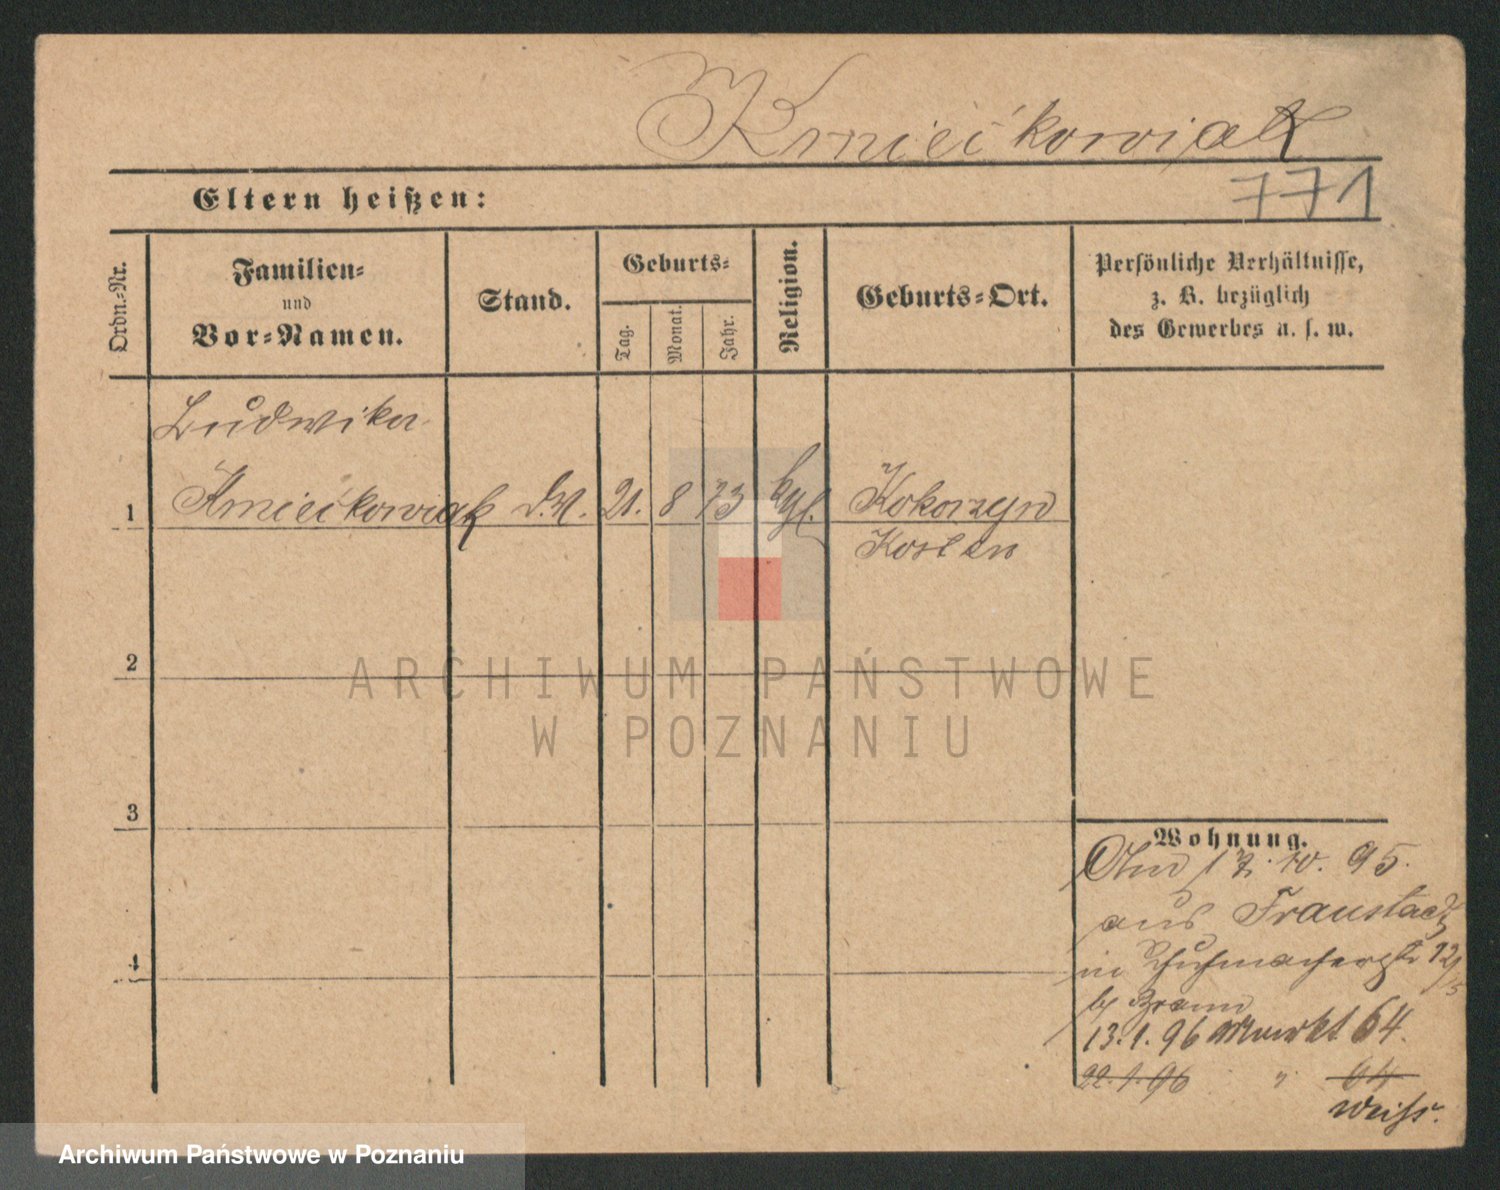 Kmiećkowiak
771
Eltern heißen:
Ordn.-Nr.
Familien-
und
Vor-Namen.
Stand.
Geburts-
Tag.
Monat.
Jahr.
Religion.
Geburts-Ort.
Persönliche Verhältnisse,
z. B. bezüglich
des Gewerbes u. s. w.
Ludwika
1 Kmiećkowiak D.M. 21. 8 73 kgl. Kokorzyn
Kosten
2
ARCHIWUM PAŃSTWOWE
W POZNANIU
3
Wohnung.
17.10.95.
aus Fraustadt
4
in Schuhmacherstr 12/
13.1.96 Markt 64.
22.1.96 " 64
Weiss.
Archiwum Państwowe w Poznaniu